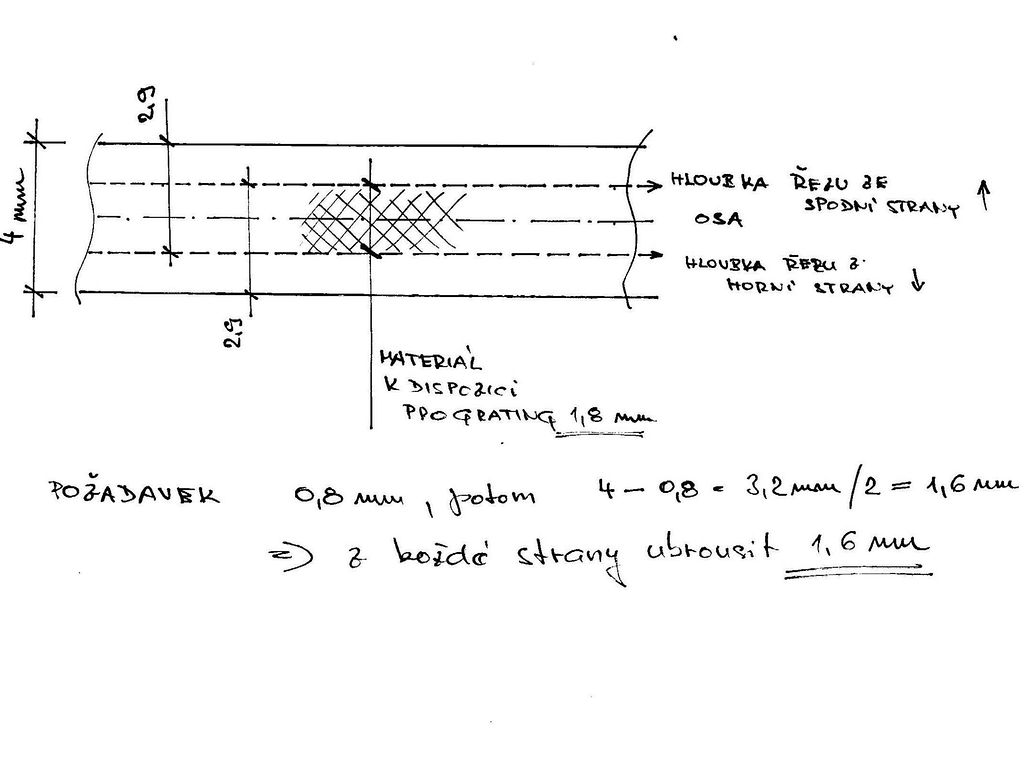 2,9
4 mm
HLOUBKA ŘEZU ZE
SPODNÍ STRANY
OSA
HLOUBKA ŘEZU Z
HORNÍ STRANY
2,9
MATERIÁL
K DISPOZICI
PRO GRATING 1,8 mm
POŽADAVEK 0,8 mm, potom 4 - 0,8 = 3,2 mm/2 = 1,6 mm
=> z každé strany ubrousit 1,6 mm